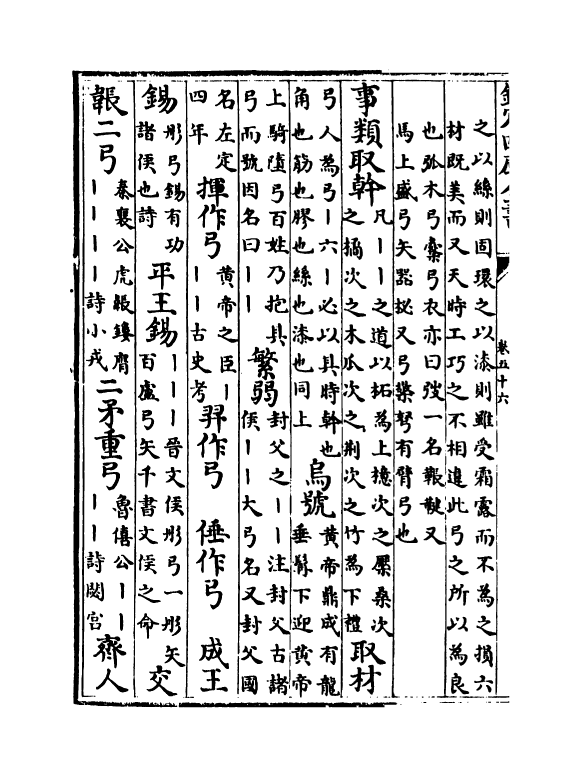 欽定四庫全書 卷五十六
之以絲則固環之以漆則雖受霜露而不為之損六
材既美而又天時工巧之不相違此弓之所以為良
也弧木弓櫜弓衣亦曰弢一名韔鞬又
馬上盛弓矢器柲又弓檠弩有臂弓也
事類取幹 凡丨丨之道以柘為上檍次之檿桑次之橘次之木瓜次之荆次之竹為下禮 取材
弓人為弓丨六丨必以其時幹也角也筋也膠也絲也漆也同上 烏號 黄帝鼎成有龍垂髯下迎黄帝
上騎墮弓百姓乃抱其弓而號因名曰丨丨 繁弱 封父之丨丨注封父古諸侯丨丨大弓名又封父國
名左定四年 揮作弓 黄帝之臣丨丨丨古史考 羿作弓 倕作弓 成王
錫 彤弓錫有功諸侯也詩 平王錫 丨丨丨晉文侯彤弓一彤矢百盧弓矢千書文侯之命 交
韔二弓 秦襄公虎韔鏤膺丨丨丨丨詩小戎 二矛重弓 魯僖公丨丨丨丨詩閟宫 齊人